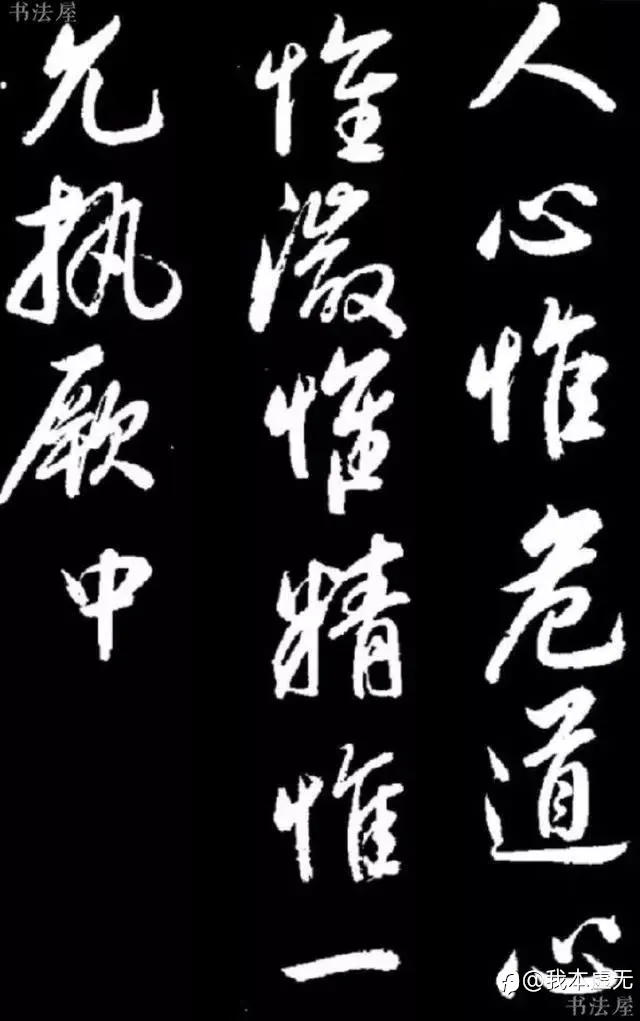 人心惟危道心
惟微惟精惟一
允执厥中
书法屋
@我本虚无
书法屋